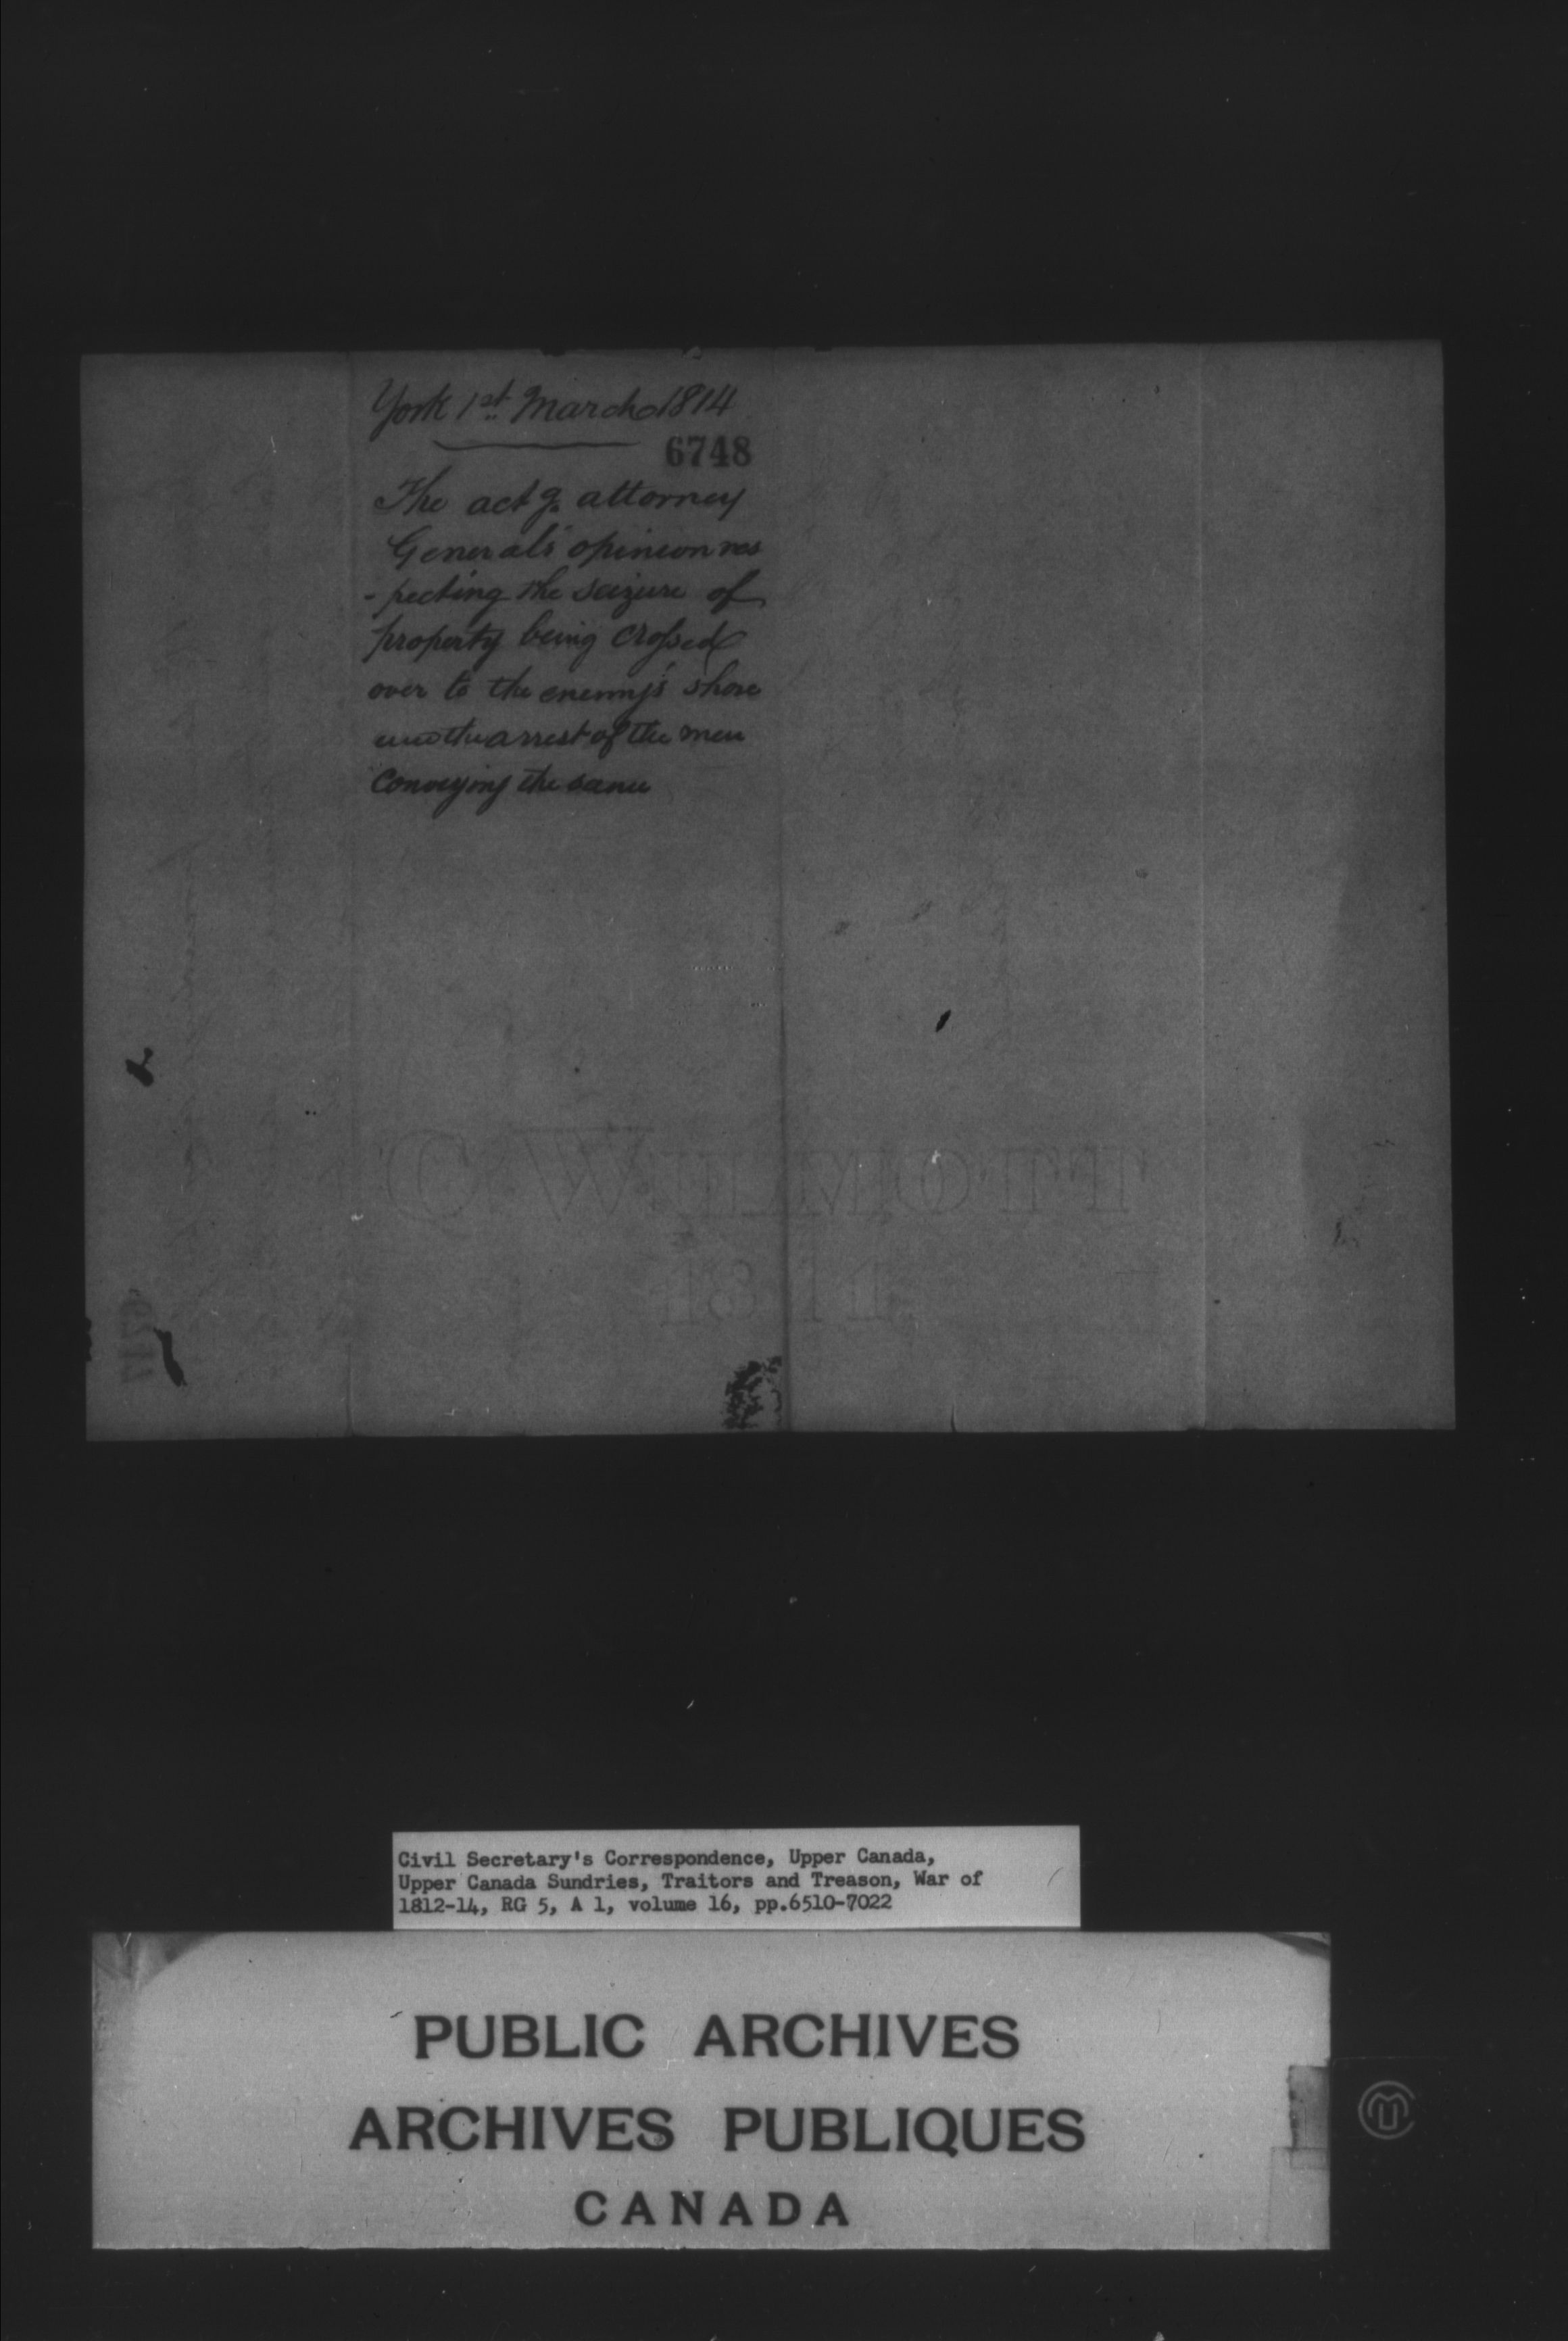 York 1st March 1814
6748
The actg. attorney
General's opinion res
-pecting the seizure of
property being crossed
over to the enemy's shore
and the arrest of the men
Conveying the same
C WILMOTT
1811
Civil Secretary's Correspondence, Upper Canada,
Upper Canada Sundries, Traitors and Treason, War of
1812-14, RG 5, A 1, volume 16, pp.6510-7022
PUBLIC ARCHIVES
ARCHIVES PUBLIQUES
CANADA